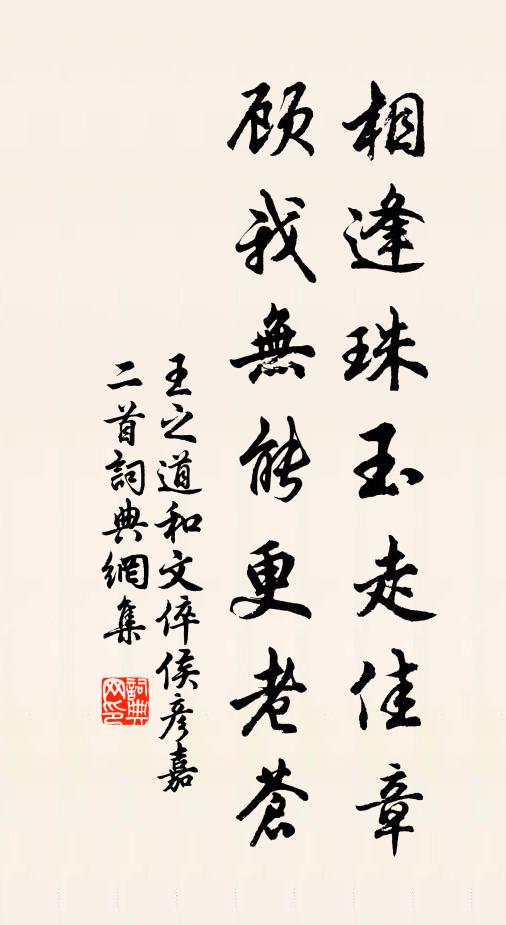 相逢珠玉走佳章
顧我無能更老蒼
王之道和文倅侯彥嘉
二首詞典網集
詞典網印